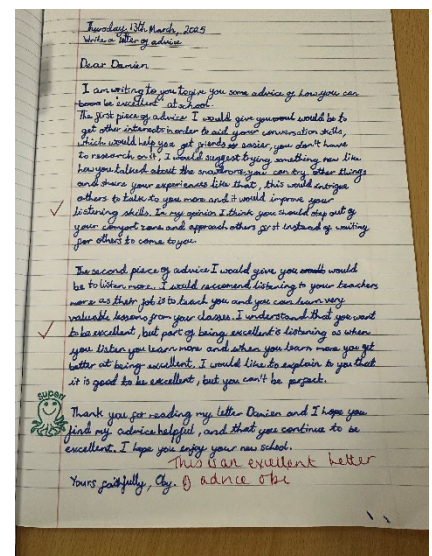 Thursday 13th March, 2025
Write a letter of advice
Dear Damien
I am writing to you to give you some advice of how you can
be excellent at school.
The first piece of advice I would give you would be to
get other interests in order to aid your conversation skills,
which would help you get friends easier, you don't have
to research on it, I would suggest trying something new like
how you talked about the you can try other things
and share your experiences like that, this would intrigue
others to talk to you more and it would improve your
listening skills. In my opinion I think you should step out of
your comfort zone and approach others first instead of waiting
for others to come to you.
The second piece of advice I would give you would
be to listen more. I would recommend listening to your teachers
more as their job is to teach you and you can learn very
valuable lessons from your classes. I understand that you want
to be excellent, but part of being excellent is listening as when
you listen you learn more and when you learn more you get
better at being excellent. I would like to explain to you that
it is good to be excellent, but you can't be perfect.
super!
Thank you for reading my letter Damien and I hope you
find my advice helpful, and that you continue to be
excellent. I hope you enjoy your new school.
This is an excellent letter
Yours faithfully,
of advice